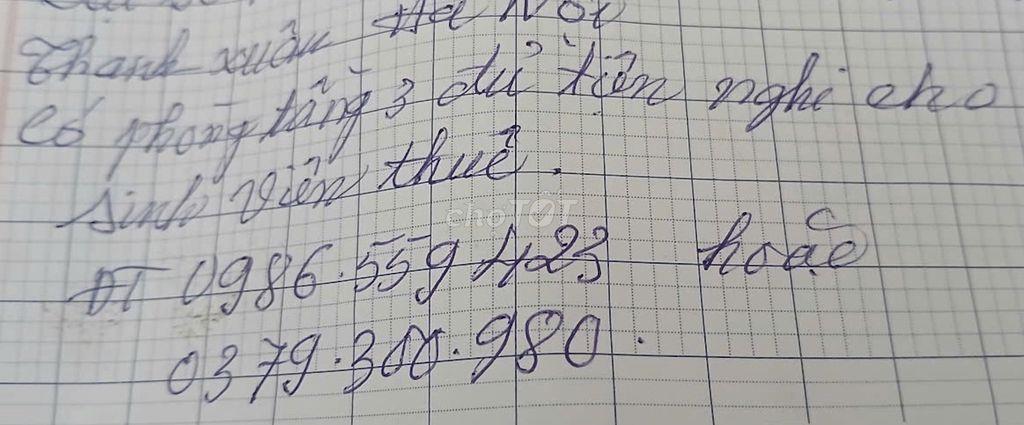 Thanh xuân Hà Nội
Có phòng tầng 3 đủ tiện nghi cho
sinh viên thuê.
choTỐT
ĐT 0986.559423 hoặc
0379.300.980.